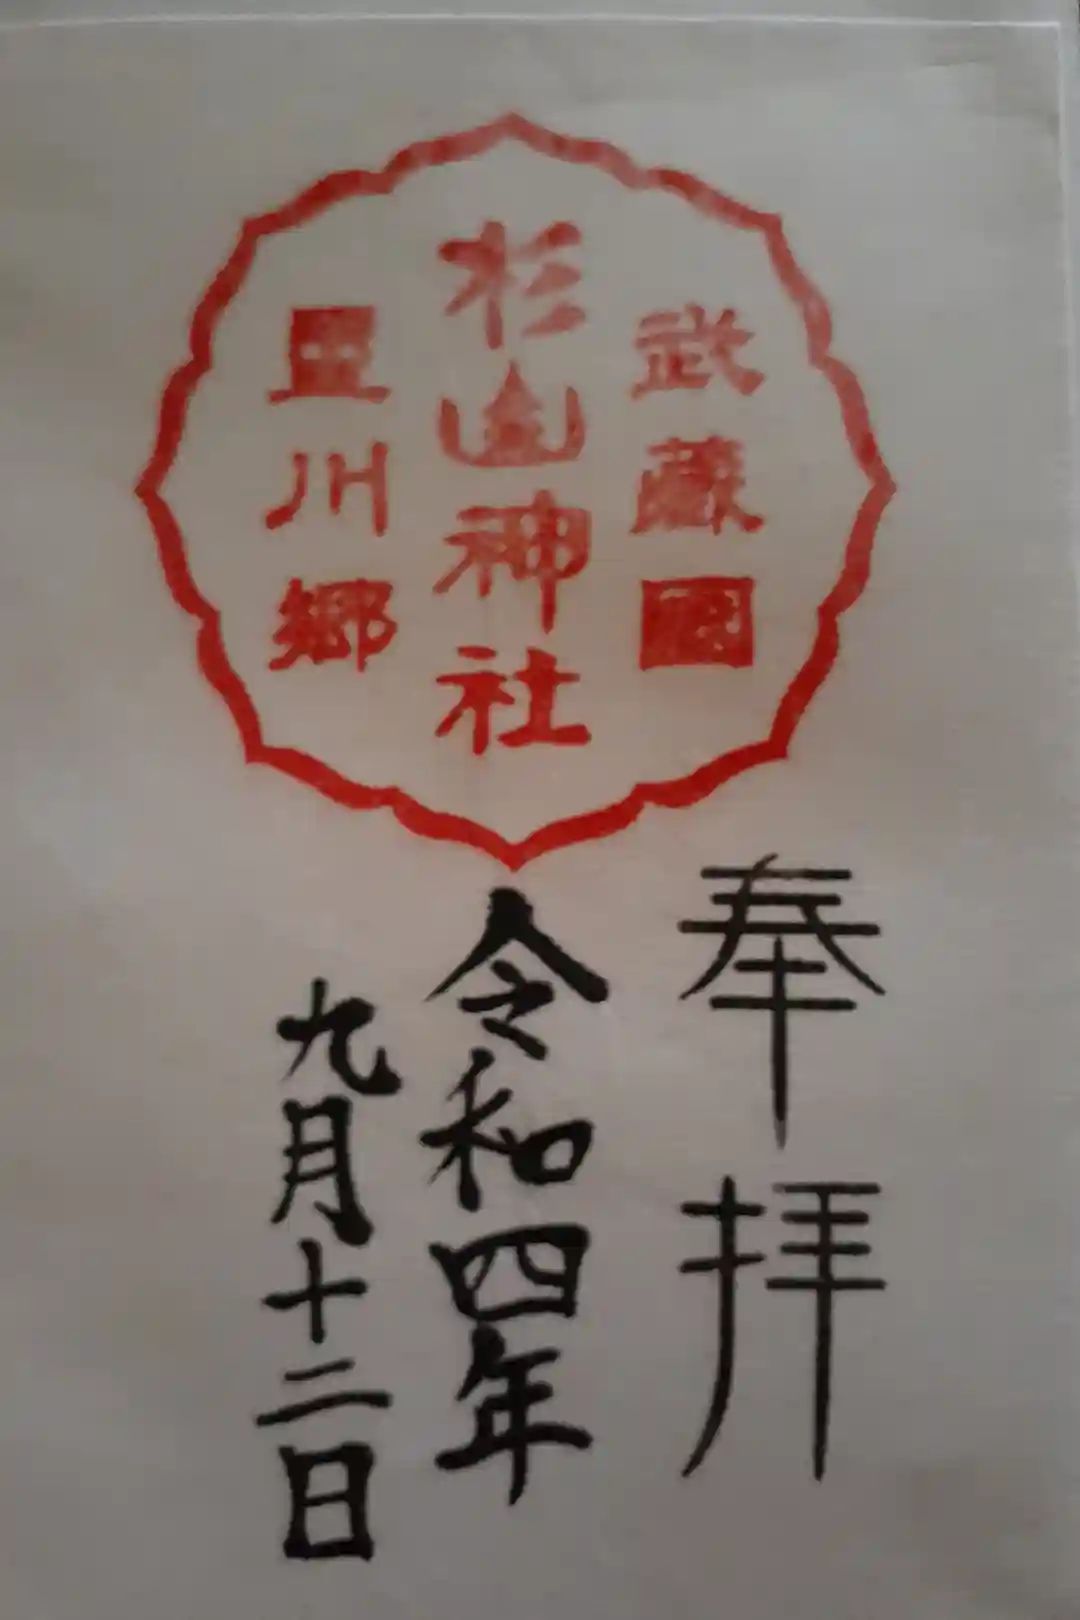 武藏國
杉山神社
豊川郷
奉拝
令和四年
九月十二日